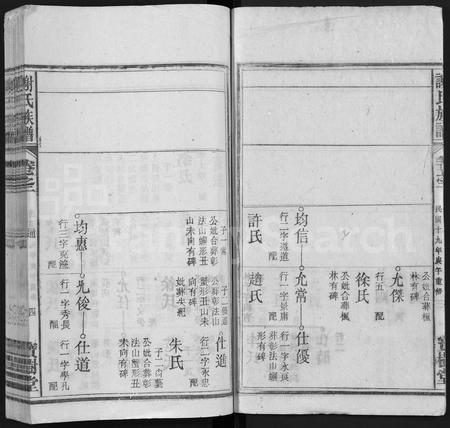 謝氏族譜
民國十九年庚午重修
寶樹堂
公妣合葬楓
林有碑
允傑
行五 配
徐氏
公妣合葬楓
林有碑
均信 允常 仕優
行二字進道 配
行一字景庸 配
行一字永良
葬彰法山蠏
形有碑
許氏
趙氏
子一常
公妣合葬彰
法山蠏形丑
山未向有碑
公葬彰法山
蠏形丑山未
向有碑
妣葬失紀
仕進
行二字永忠 配
朱氏
子一尚藝
公妣合葬彰
法山蠏形丑
未向有碑
均惠 允俊 仕道
行三字克進 配
行一字秀長 配
行一字學孔 配
謝氏族譜
卷之
四
寶樹堂